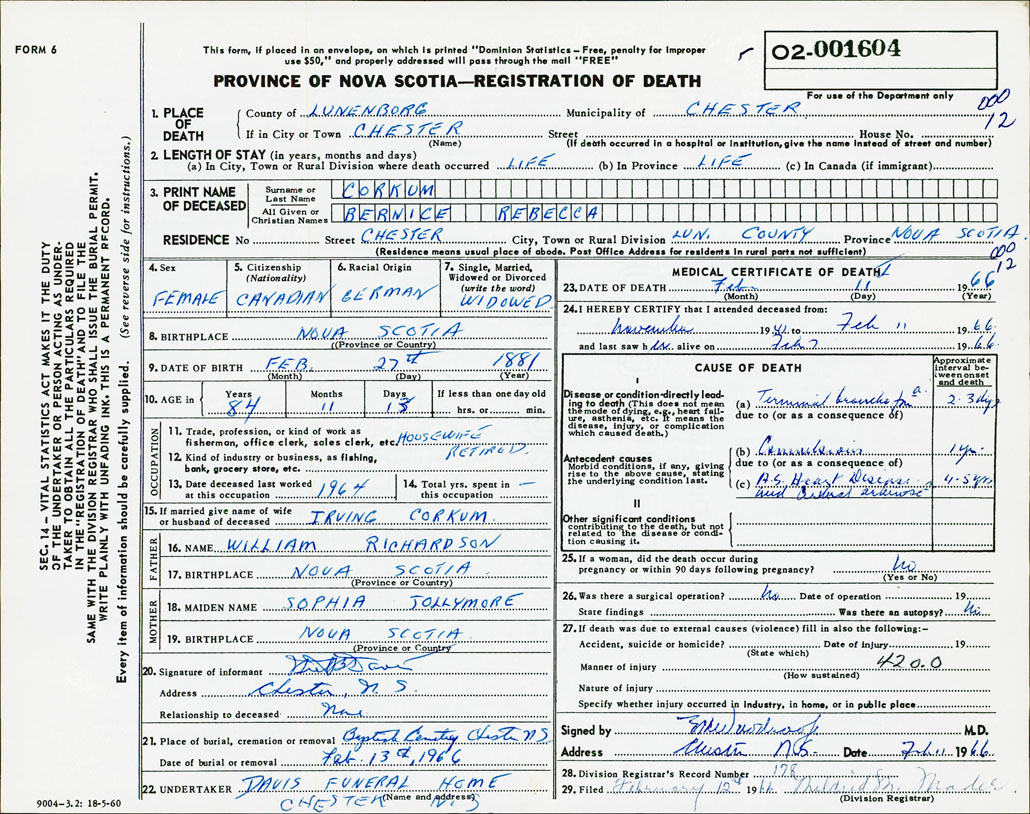 FORM 6
This form, if placed in an envelope, on which is printed "Dominion Statistics – Free, penalty for improper
use $50," and properly addressed will pass through the mail "FREE"
02-001604
For use of the Department only
PROVINCE OF NOVA SCOTIA—REGISTRATION OF DEATH
000
12
1. PLACE OF DEATH
County of LUNENBORG Municipality of CHESTER
If in City or Town CHESTER Street House No.
(Name) (If death occurred in a hospital or institution, give the name instead of street and number)
2. LENGTH OF STAY (in years, months and days)
(a) In City, Town or Rural Division where death occurred LIFE (b) In Province LIFE (c) In Canada (if immigrant)
3. PRINT NAME OF DECEASED
Surname or Last Name CORKUM
All Given or Christian Names BERNICE REBECCA
RESIDENCE No Street CHESTER City, Town or Rural Division LUN. COUNTY Province NOVA SCOTIA
(Residence means usual place of abode. Post Office Address for residents in rural parts not sufficient)
000
12
SEC. 14 – VITAL STATISTICS ACT MAKES IT THE DUTY
OF THE UNDERTAKER OR PERSON ACTING AS UNDER-
TAKER TO OBTAIN ALL THE PARTICULARS REQUIRED
IN THE "REGISTRATION OF DEATH" AND TO FILE THE
SAME WITH THE DIVISION REGISTRAR WHO SHALL ISSUE THE BURIAL PERMIT.
WRITE PLAINLY WITH UNFADING INK. THIS IS A PERMANENT RECORD.
Every item of information should be carefully supplied. (See reverse side for instructions.)
4. Sex
FEMALE
5. Citizenship
(Nationality)
CANADIAN
6. Racial Origin
GERMAN
7. Single, Married,
Widowed or Divorced
(write the word)
WIDOWED
8. BIRTHPLACE NOVA SCOTIA
(Province or Country)
9. DATE OF BIRTH FEB. 27th 1881
(Month) (Day) (Year)
10. AGE in Years Months Days If less than one day old
84 11 15 hrs. or min.
OCCUPATION
11. Trade, profession, or kind of work as
fisherman, office clerk, sales clerk, etc. HOUSEWIFE
12. Kind of industry or business, as fishing, RETIRED.
bank, grocery store, etc.
13. Date deceased last worked
at this occupation 1964
14. Total yrs. spent in
this occupation —
15. If married give name of wife
or husband of deceased IRVING CORKUM.
FATHER
16. NAME WILLIAM RICHARDSON
17. BIRTHPLACE NOVA SCOTIA
(Province or Country)
MOTHER
18. MAIDEN NAME SOPHIA JOLLYMORE
19. BIRTHPLACE NOVA SCOTIA
(Province or Country)
20. Signature of informant
Address Chester, N.S.
Relationship to deceased None
21. Place of burial, cremation or removal Baptist Chester N.S
Date of burial or removal Feb. 13th, 1966
22. UNDERTAKER DAVIS FUNERAL HOME
(Name and address)
CHESTER N.S
9004–3.2: 18-5-60
MEDICAL CERTIFICATE OF DEATH
23. DATE OF DEATH Feb 11 1966
(Month) (Day) (Year)
24. I HEREBY CERTIFY that I attended deceased from:
November 19 to Feb 11 1966
and last saw her alive on Feb 7 1966
CAUSE OF DEATH
Approximate
interval be-
tween onset
and death
I
Disease or condition directly lead-
ing to death (This does not mean
the mode of dying, e.g., heart fail-
ure, asthenia, etc. It means the
disease, injury, or complication
which caused death.)
(a) Terminal 2-3 dys
due to (or as a consequence of)
Antecedent causes
Morbid conditions, if any, giving
rise to the above cause, stating
the underlying condition last.
(b) 1 yr.
due to (or as a consequence of)
(c) A.S. Heart Disease 4-5 yrs
and
II
Other significant conditions
contributing to the death, but not
related to the disease or condi-
tion causing it.
25. If a woman, did the death occur during
pregnancy or within 90 days following pregnancy? No
(Yes or No)
26. Was there a surgical operation? No Date of operation 19
State findings Was there an autopsy? No
27. If death was due to external causes (violence) fill in also the following:–
Accident, suicide or homicide? Date of injury 19
(State which)
Manner of injury 420.0
(How sustained)
Nature of injury
Specify whether injury occurred in industry, in home, or in public place
Signed by M.D.
Address Chester N.S. Date Feb 11 1966
28. Division Registrar's Record Number 178
29. Filed February 12th 1966 Mildred
(Division Registrar)